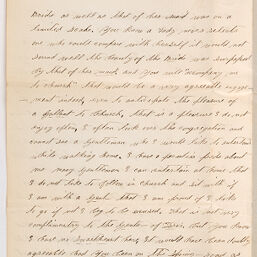 Bride as well as that of her maid was on a
limited scale. You know a lady never selects
one who could compare with herself it would not
sound well the beauty of the Bride was surpassed
by that of her maid, and you will accompany me
to church that would be a very agreeable engage-
ment indeed, even to anticipate the pleasure of
a Gallant to Church, that is a pleasure I do not
enjoy often, I often look over the congregation and
cannot see a Gentleman who I would like to entertain
while walking home. I have a peculiar pride about
me many Gentlemen I can entertain at home that
I do not like to follow in church and sit with if
I am with a Gent that I am proud of I like
to go if not I beg to be excused. that is not very
complimentary to the Gents of but you know
I have no Sweetheart here, it would have been doubly
agreeable had you been in the